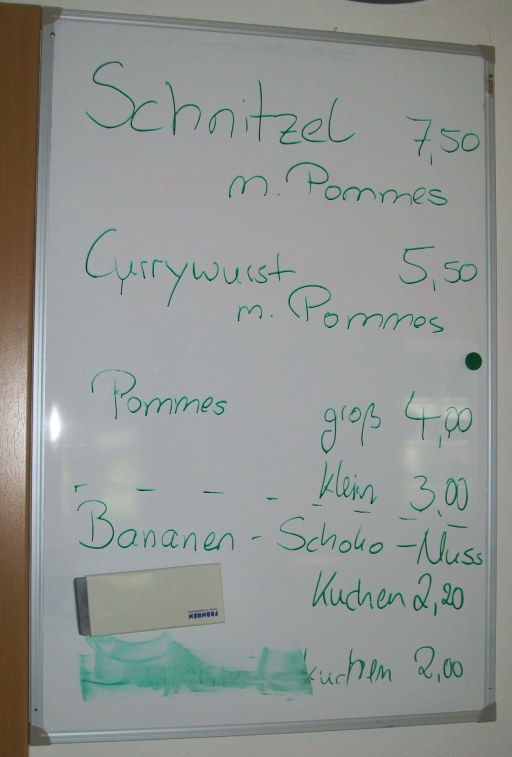 Schnitzel 7,50
m. Pommes
Currywurst 5,50
m. Pommes
Pommes groß 4,00
klein 3,00
Bananen - Schoko - Nuss
Kuchen 2,20
FRANKEN
kuchen 2,00